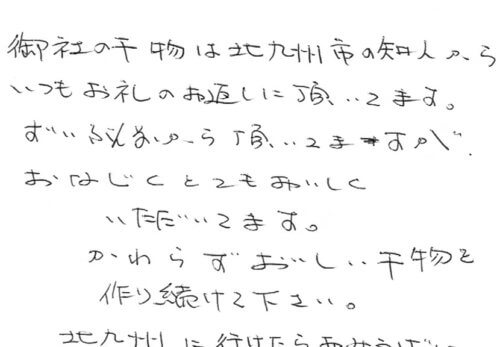 御社の干物は北九州市の知人から
いつもお礼のお返しに頂いてます。
ずい から頂いてますが、
おなじくとてもおいしく
いただいてます。
かわらずおいしい干物を
作り続けて下さい。
北九州に行けたら